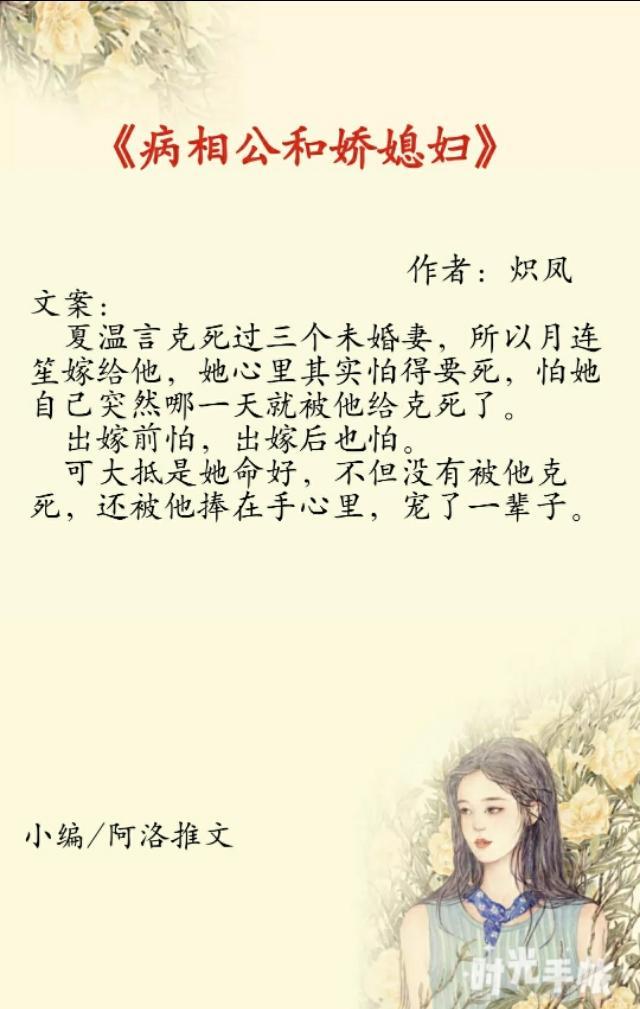 《病相公和娇媳妇》
作者：炽凤
文案：
夏温言克死过三个未婚妻，所以月连
笙嫁给他，她心里其实怕得要死，怕她
自己突然哪一天就被他给克死了。
出嫁前怕，出嫁后也怕。
可大抵是她命好，不但没有被他克
死，还被他捧在手心里，宠了一辈子。
小编/阿洛推文
时光手帐